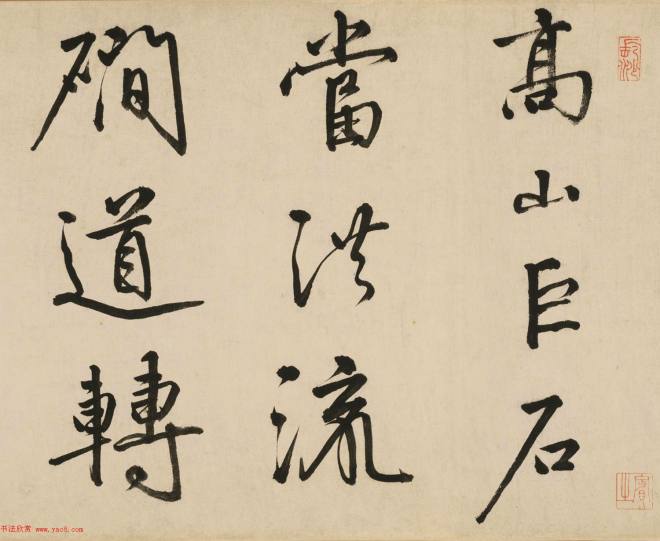 高山巨石
當洪流
磵道轉
长沙
书法欣赏 www.yac8.com